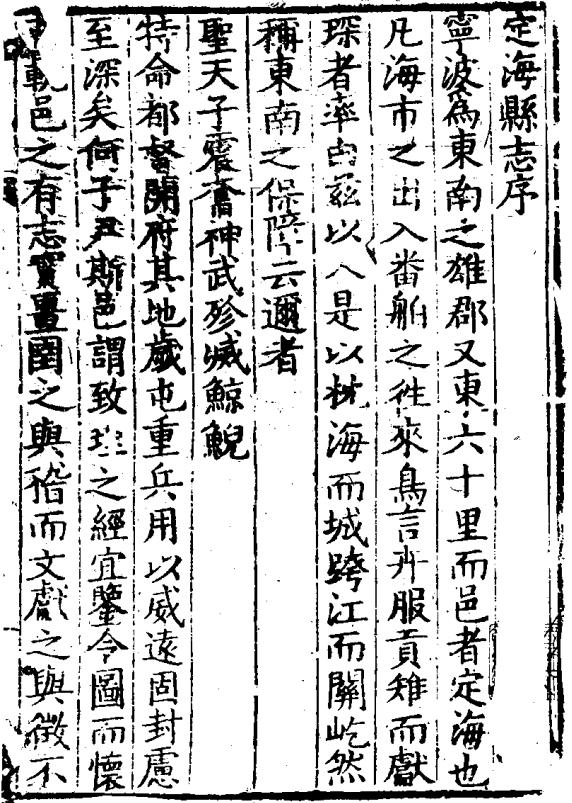 定海縣志序
寧波為東南之雄郡又東六十里而邑者定海也
凡海市之出入番舶之徃來鳥言卉服貢雉而獻
琛者率由茲以入是以枕海而城跨江而關屹然
稱東南之保障云邇者
聖天子震奮神武殄滅鯨鯢
特命都督開府其地歲屯重兵用以威遠固封慮
至深矣何子尹斯邑謂致理之經宜鑒今圖而懷
軌邑之有志實畺圉之與稽而文獻之與徵不